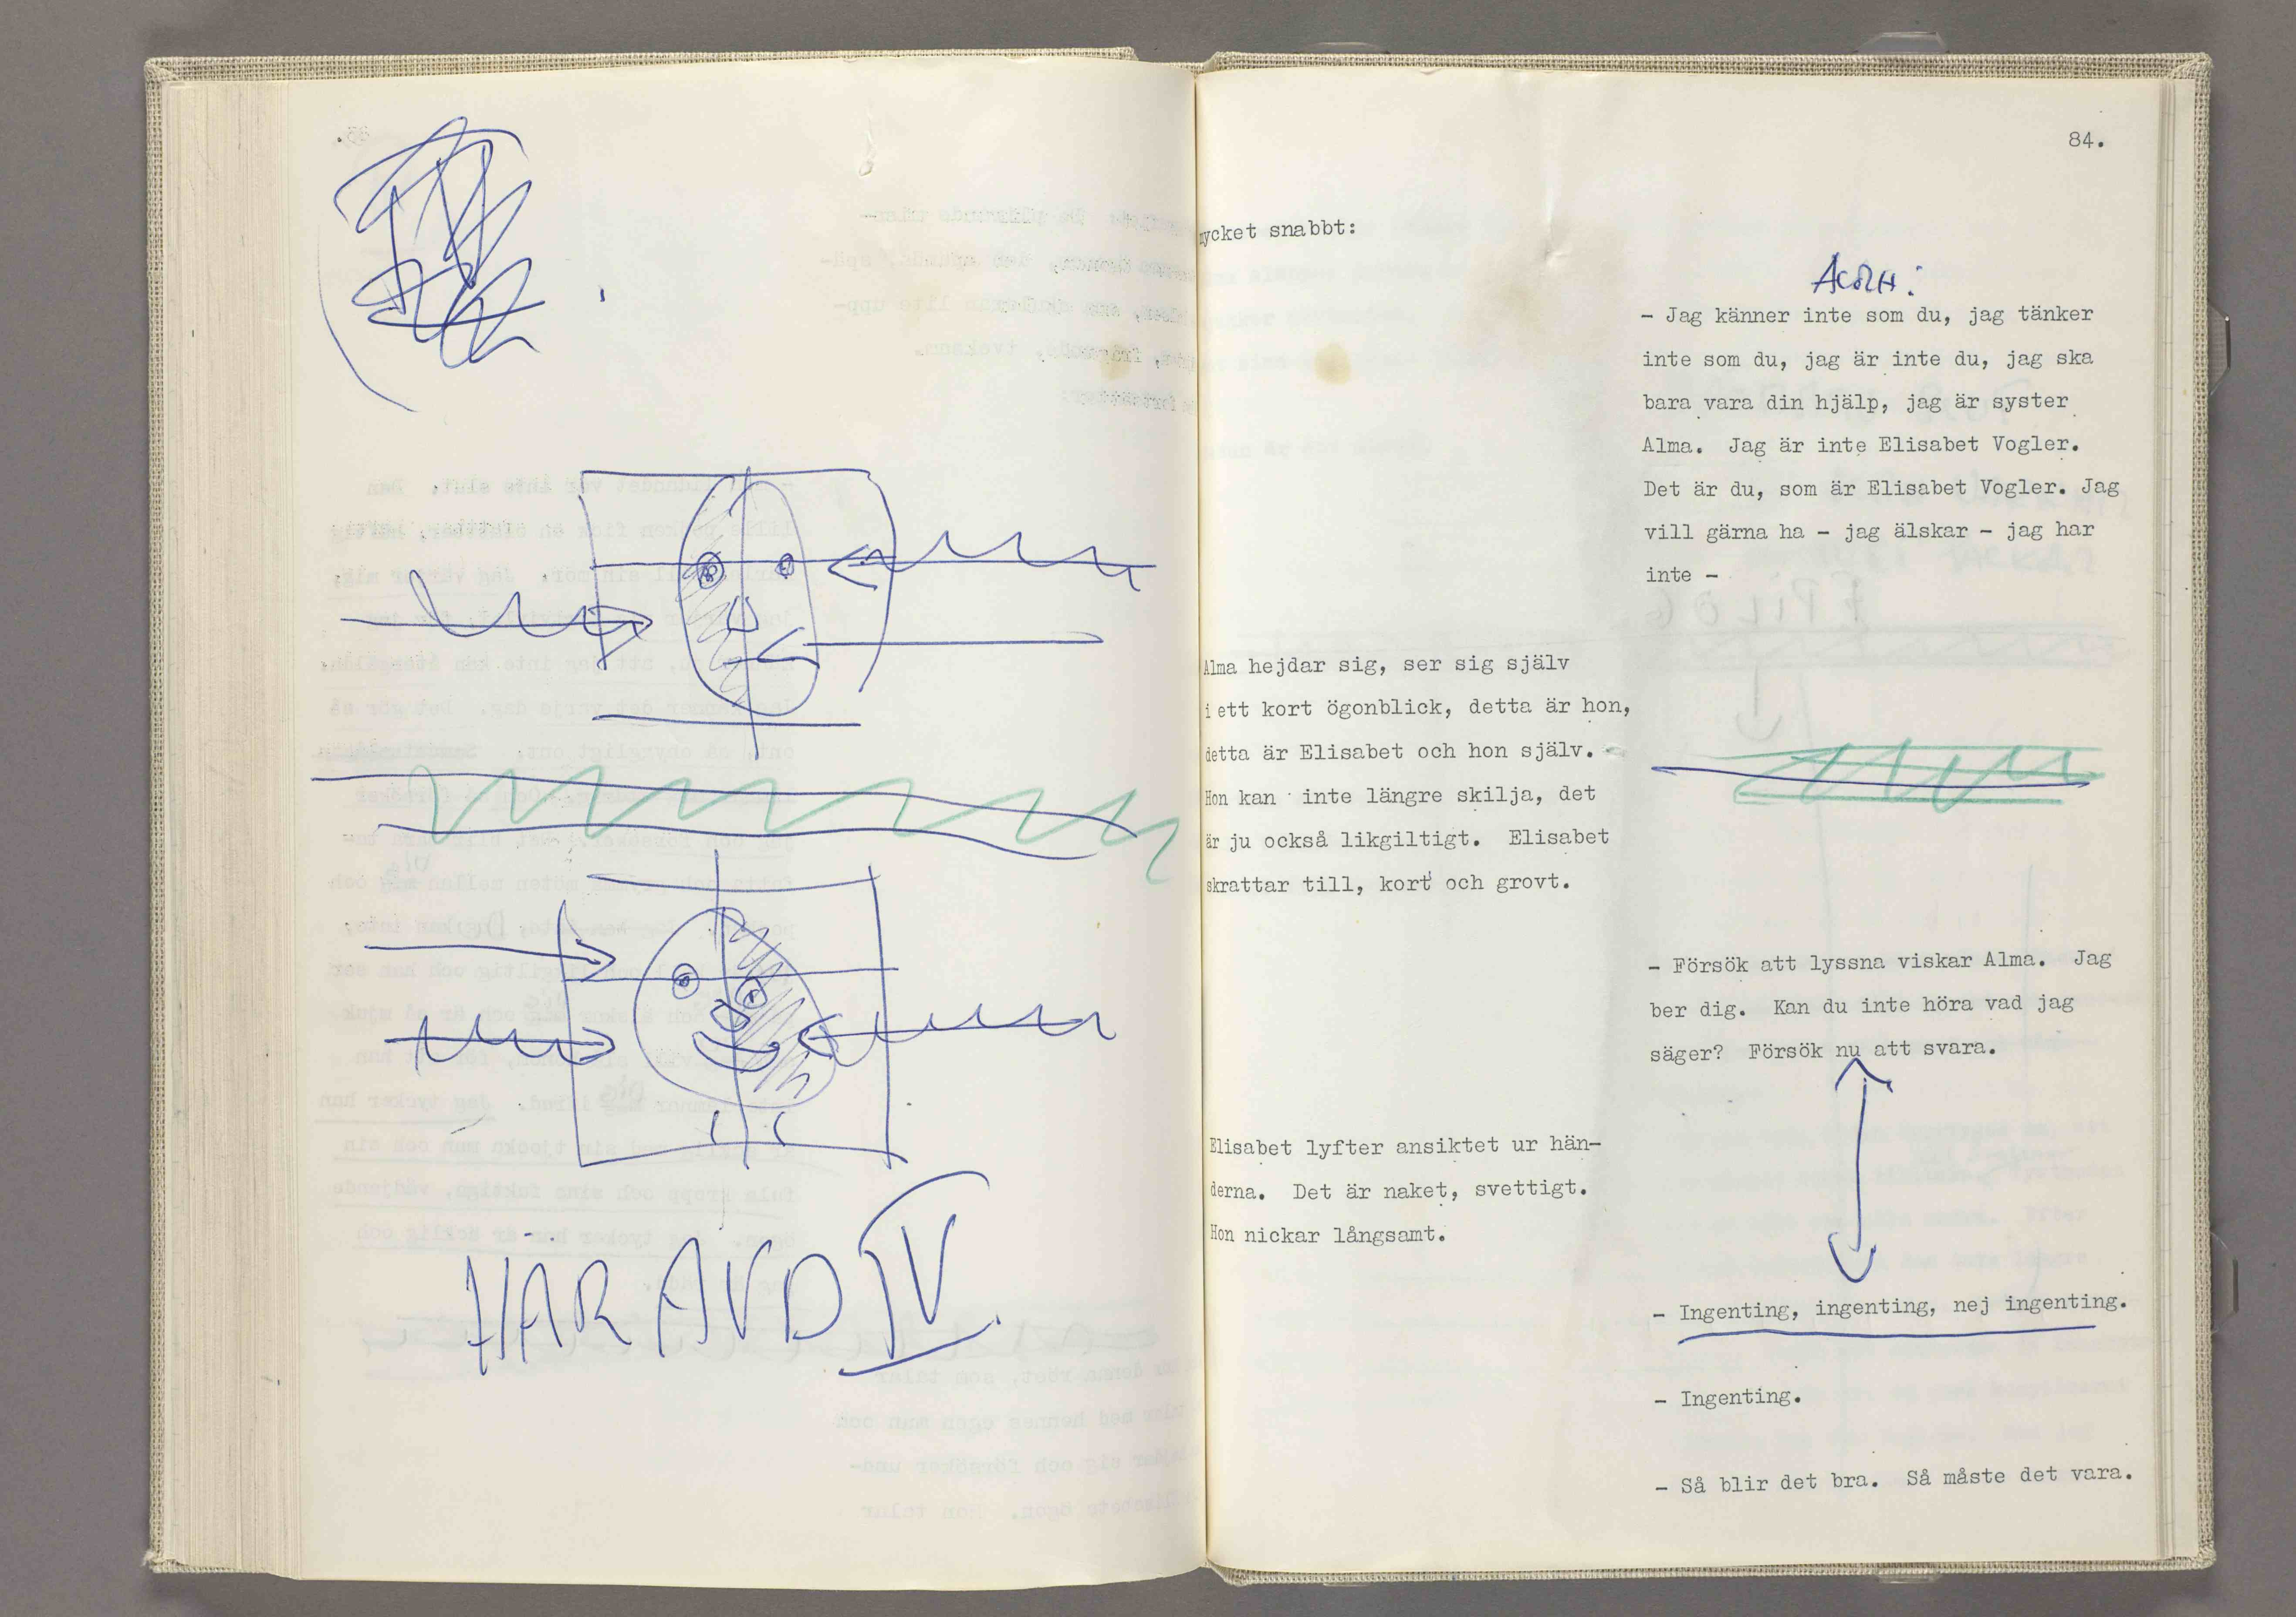 HÄR AVD IV.
84.
mycket snabbt:
- Jag känner inte som du, jag tänker
inte som du, jag är inte du, jag ska
bara vara din hjälp, jag är syster
Alma. Jag är inte Elisabet Vogler.
Det är du, som är Elisabet Vogler. Jag
vill gärna ha - jag älskar - jag har
inte -
Alma hejdar sig, ser sig själv
i ett kort ögonblick, detta är hon,
detta är Elisabet och hon själv.
Hon kan inte längre skilja, det
är ju också likgiltigt. Elisabet
skrattar till, kort och grovt.
- Försök att lyssna viskar Alma. Jag
ber dig. Kan du inte höra vad jag
säger? Försök nu att svara.
Elisabet lyfter ansiktet ur hän-
derna. Det är naket, svettigt.
Hon nickar långsamt.
- Ingenting, ingenting, nej ingenting.
- Ingenting.
- Så blir det bra. Så måste det vara.